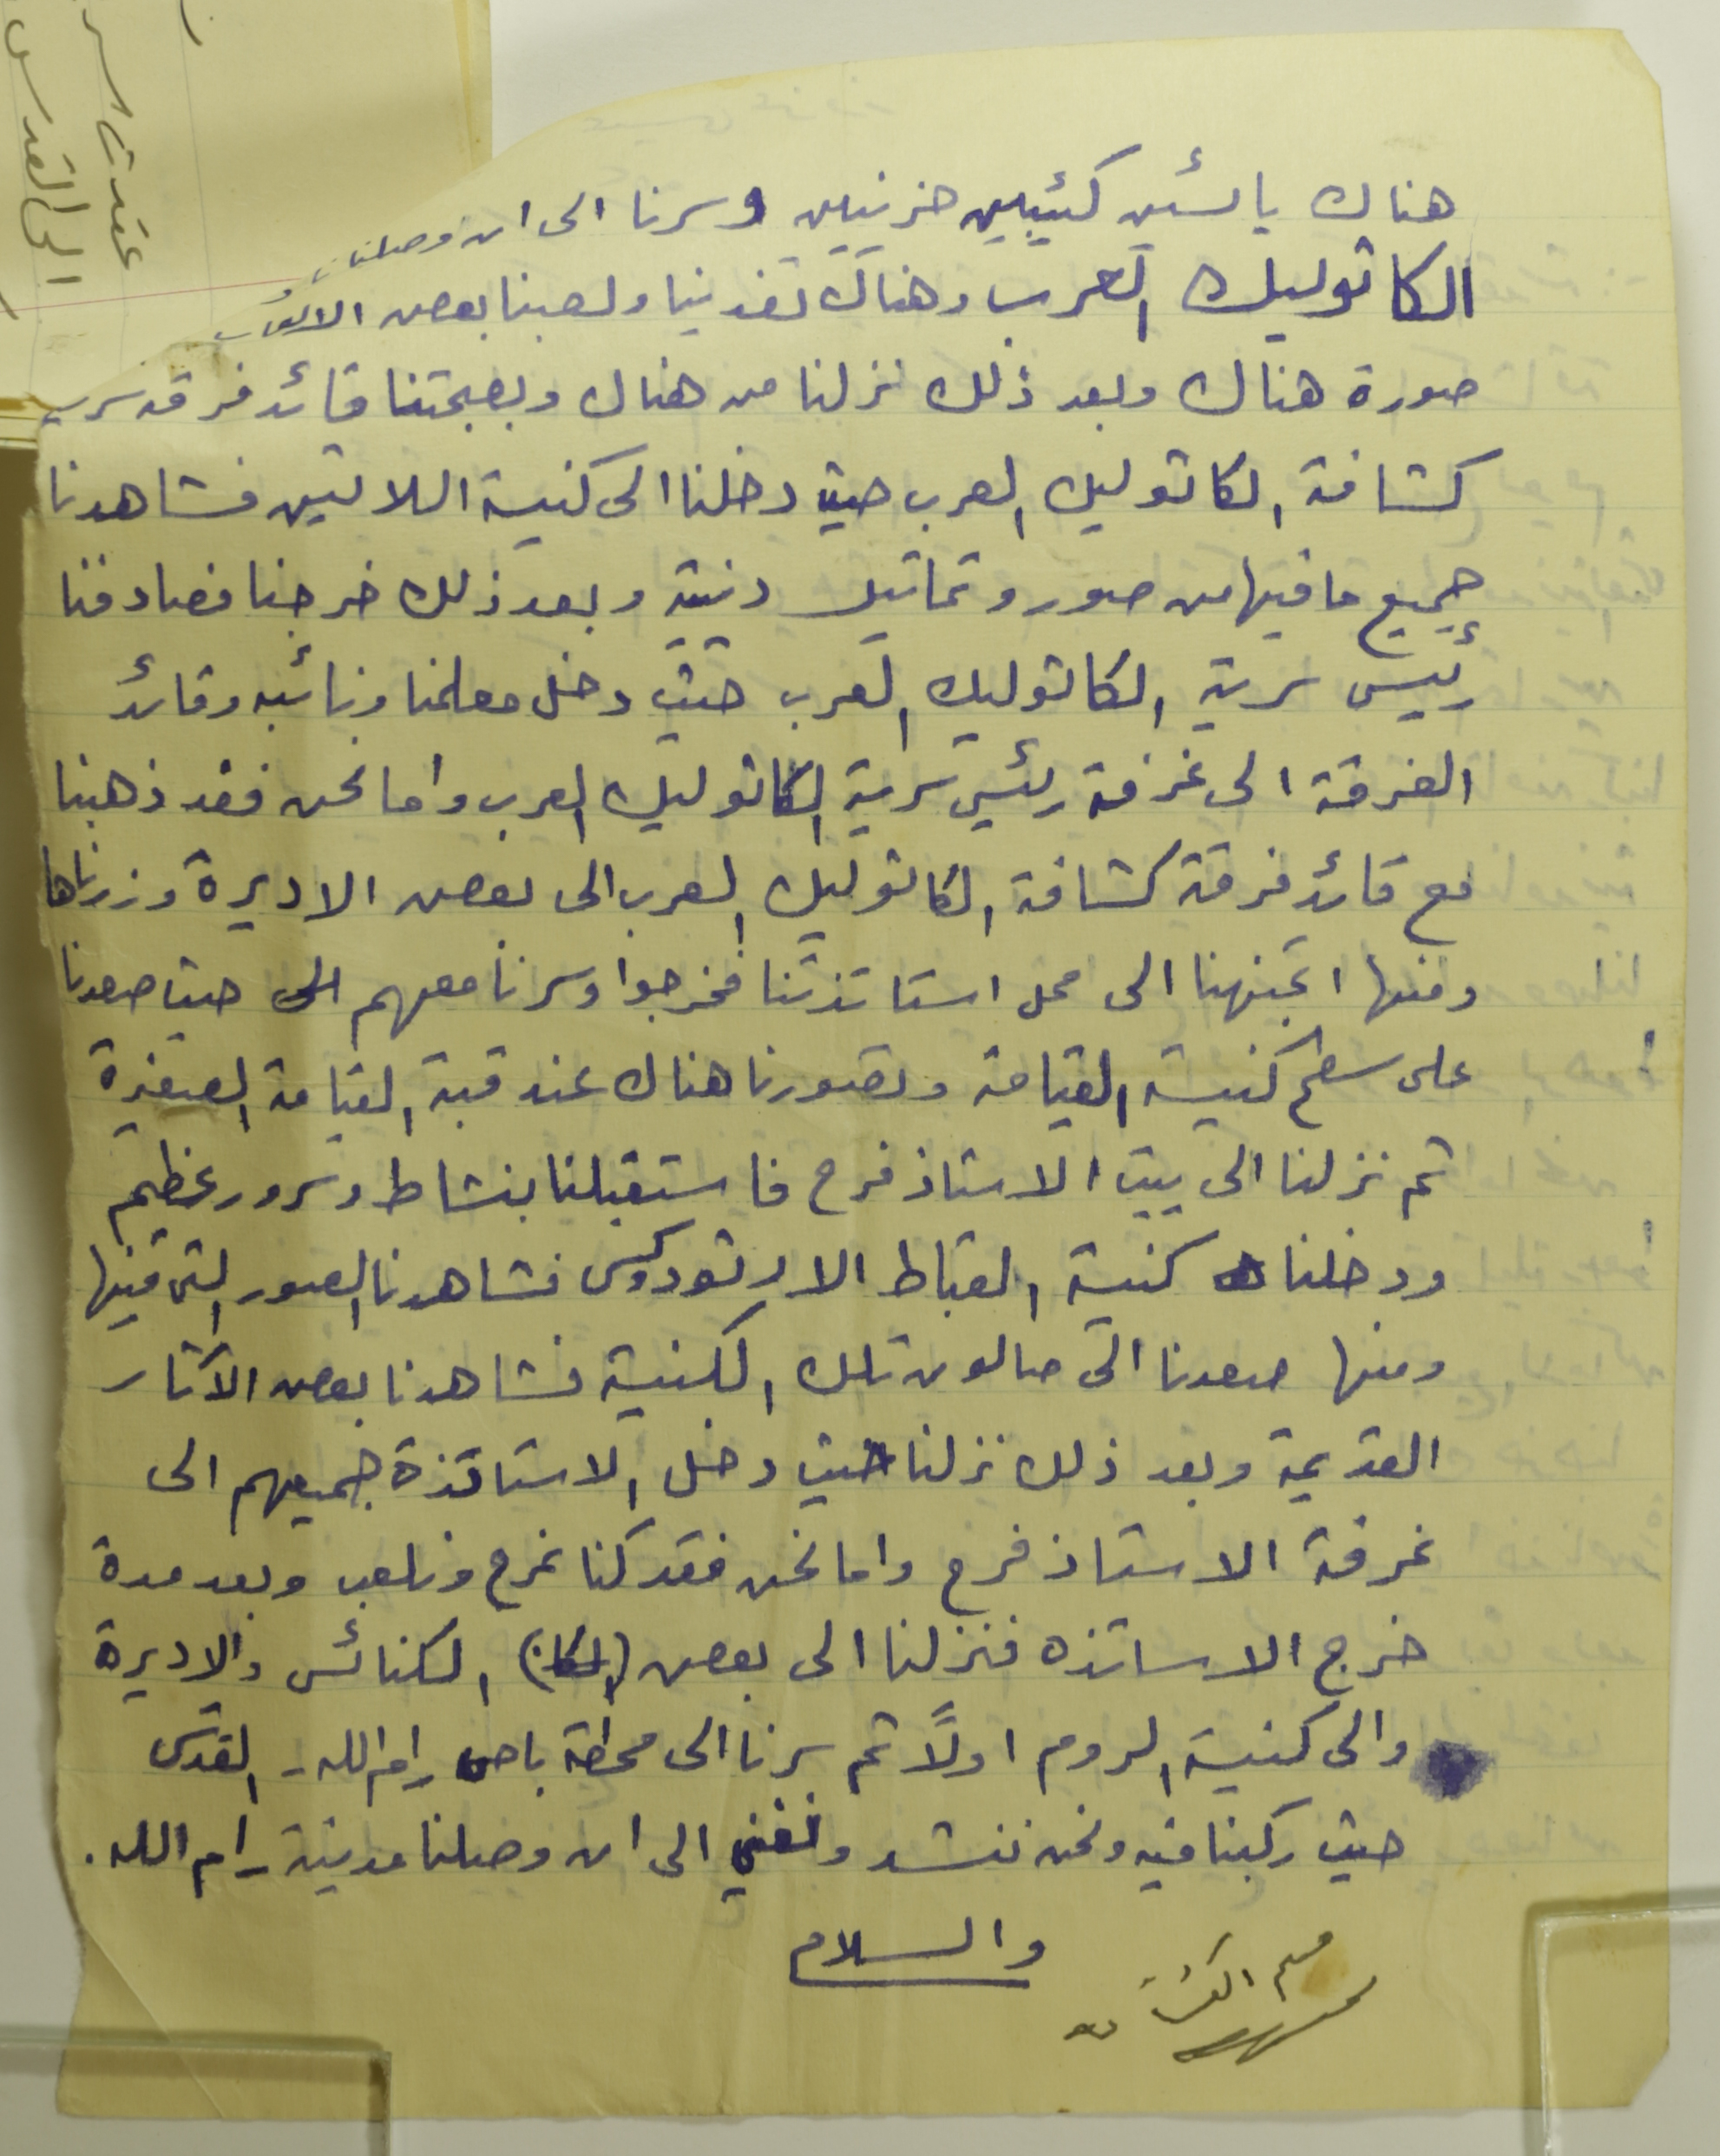 هناك يائسين كئيبين حزينين وسرنا الى ان وصلنا
الكاثوليك العرب وهناك تغدينا ولعبنا بعض الالعاب
صورة هناك وبعد ذلك نزلنا من هناك وبصحبتنا قائد فرقة سرية
كشافة الكاثوليك العرب حيث دخلنا الى كنيسة اللاتين فشاهدنا
جميع ما فيها من صور وتماثيل دنية وبعد ذلك خرجنا فصادفنا
رئيس سرية الكاثوليك العرب حيث دخل معلمنا ونائبه وقائد
الفرقة الى غرفة رئيس سرية الكاثوليك العرب واما نحن فقد ذهبنا
مع قائد فرقة كشافة الكاثوليك العرب الى بعض الاديرة وزرناها
ومنها اتجهنا الى محل استاتذتنا فخرجوا وسرنا معهم الى حيث صعدنا
على سطح كنيسة القيامة وتصورنا هناك عند قبة القيامة الصغيرة
ثم نزلنا الى بيت الاستاذ فرح فاستقبلنا بنشاط وسرور عظيم
ودخلنا كنيسة القباط الارثودوكس فشاهدنا الصور التي فيها
ومنها صعدنا الى صالون تلك الكنيسة فشاهدنا بعض الآثار
القديمة وبعد ذلك نزلنا حيث دخل الاستاتذة جميعهم الى
غرفة الاستاذ فرح واما نحن فقد كنا نمرح ونلعب وبعد مدة
خرج الاساتذه فنزلنا الى بعض (الكا) الكنائس والاديرة
والى كنيسة الروم اولاً ثم سرنا الى محطة باص رام الله - القدس
حيث ركبنا فيه ونحن ننشد ونغني الى ان وصلنا مدينة رام الله.
والسلام
الى القدس